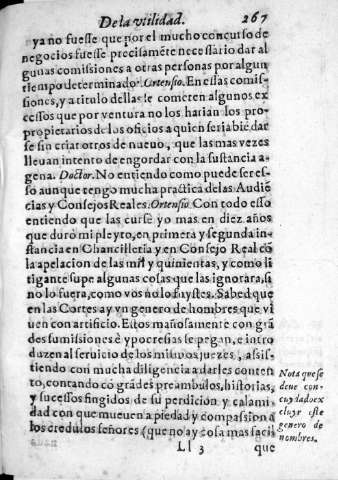 De la vtilidad. 267
ya no fuesse que por el mucho concurso de
negocios fuesse precisamẽte necessario dar al
gunas comissiones a otras personas por algun
tiempo determinado. Ortensio. En essas comis-
siones, y a titulo dellas se cometen algunos ex
cessos que por ventura no los harian los pro-
proprietarios de los oficios a quien seria biẽ dar
se sin criar otros de nueuo, que las mas vezes
lleuan intento de engordar con la sustancia a-
gena. Doctor. No entiendo como puede ser es-
so aunque tengo mucha practica de las Audiẽ
cias y Consejos Reales. Ortensio. Con todo esso
entiendo que las cursè yo mas en diez años
que durò mi pleyto, en primera y segunda in-
stancia en Chancilleria y en Consejo Real cõ
la apelacion de las mil y quinientas, y como li
tigante supe algunas cosas que las ignorara, si
no lo fuera, como vos no lo fuystes. Sabed que
en las Cortes ay vn genero de hombres que vi
uen con artificio. Estos mañosamente con grã
des sumissiones è ypocresias se pegan, e intro
duzen al seruicio de los mismos juezes, assis-
tiendo con mucha diligencia a darles conten
to, contando cõ grãdes preambulos, historias,
y sucessos fingidos de su perdicion y calami-
dad con que mueuen a piedad y compassion a
los credulos señores (que no ay cosa mas facil
Nota que se
deue con
cuydado ex
cluyr este
genero de
nombres.
Ll 3 que